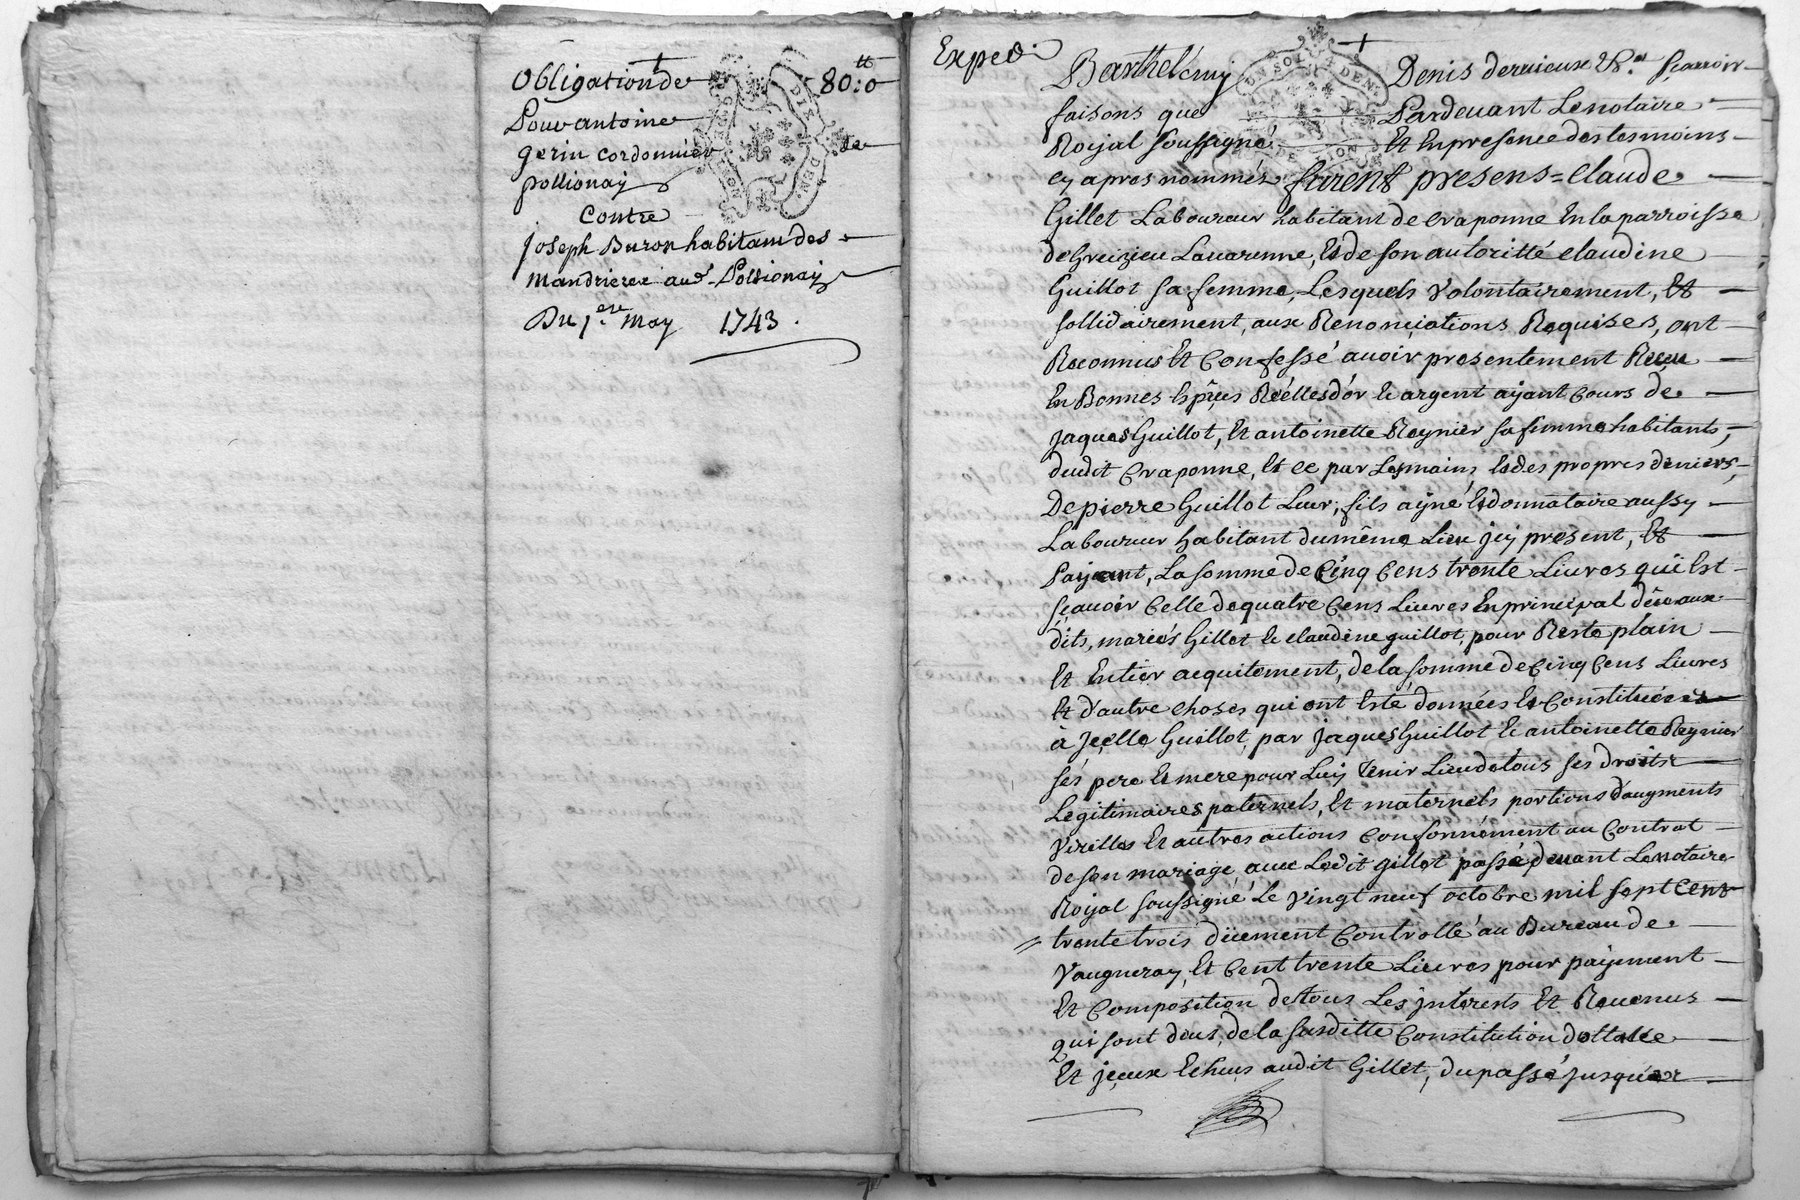 obligation de 80:0 tt
Pour antoine
gerin cordonnier de
pollionay
Contre
joseph Buron habitant des
mandrieres aud. Pollionay
Du 1.ere may 1743.
Exped.
Barthelémy Denis derrieux scavoir
faisons que Pardevant Le notaire
Roijal soussigné Et En presence des tesmoins
cy apres nommés furent presens = claude
Gillet Laboureur habitant de craponne En la parroisse
de Greizieu Lavarenne, Et de son autoritté claudine
Guillot sa femme, Lesquels Volontairement, Et
sollidairement, aux Renonciations Requises, ont
Reconnus Et Confessé avoir presentement Receu
En Bonnes Espces Réelles d'or Et argent aijant Cours de
jaques Guillot, Et antoinette Reynier sa femme habitants,
dudit Craponne, Et ce par Les mains Et des propres deniers,
De pierre Guillot Leur, fils ayné Et donnataire aussy
Laboureur habitant du même Lieu jcy present, Et
Paijant, La somme de Cinq Cens trente Livres qui Est
sçavoir Celle de quatre Cens Livres En principal düe aux
dits, mariés Gillet Et claudine guillot, pour Reste plain
Et Entier acquitement, de la somme de Cinq Cens Livres
Et d'autre choses qui ont Esté données Et Constituées
a jcelle Guillot, par jaques Guillot Et antoinette Reynier
ses pere Et mere pour Luij tenir Lieu de tous ses droits
Legitimaires paternels, Et maternels portions d'augments
Virilles Et autres actions Conformément au Contrat
de son mariage, avec Ledit Gillet passé devant Le notaire
Roijal soussigné Le Vingt neuf octobre mil sept Cens
trente trois düement Controllé au Bureau de
Vaugneray, Et Cent trente Livres pour paijement
Et Composition de tous Les jnterests Et Revenus
qui sont deus, de la susditte Constitution dottalle
Et jceux Echeus audit Gillet, du passé jusques